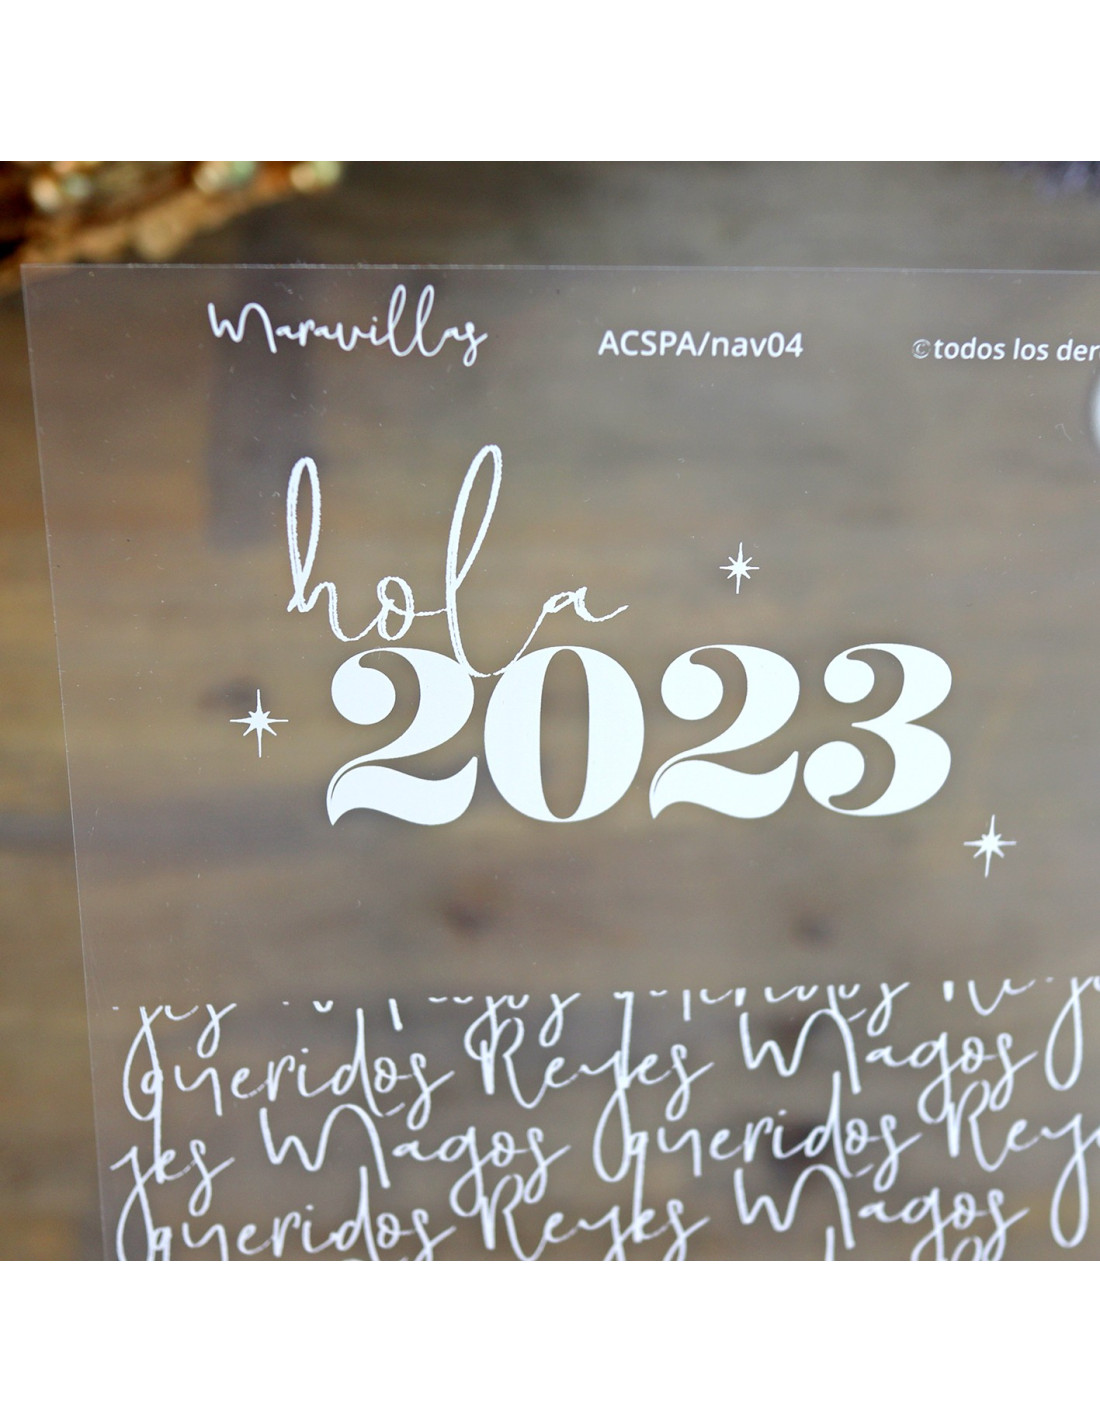 Maravillas ACSPA/nav04 ©todos los der
hola
2023
Queridos Reyes Magos
yes Magos Queridos Reye
Queridos Reyes Magos